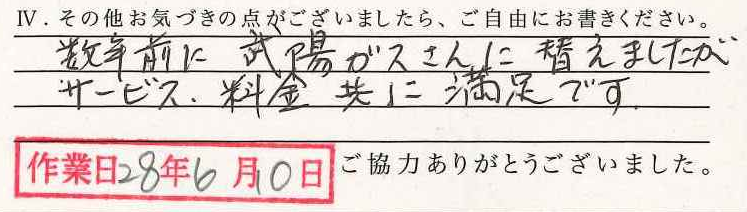 Ⅳ．その他お気づきの点がございましたら、ご自由にお書きください。
数年前に 武陽ガスさんに 替えましたが
サービス、料金 共に 満足です
作業日28年6月10日
ご協力ありがとうございました。